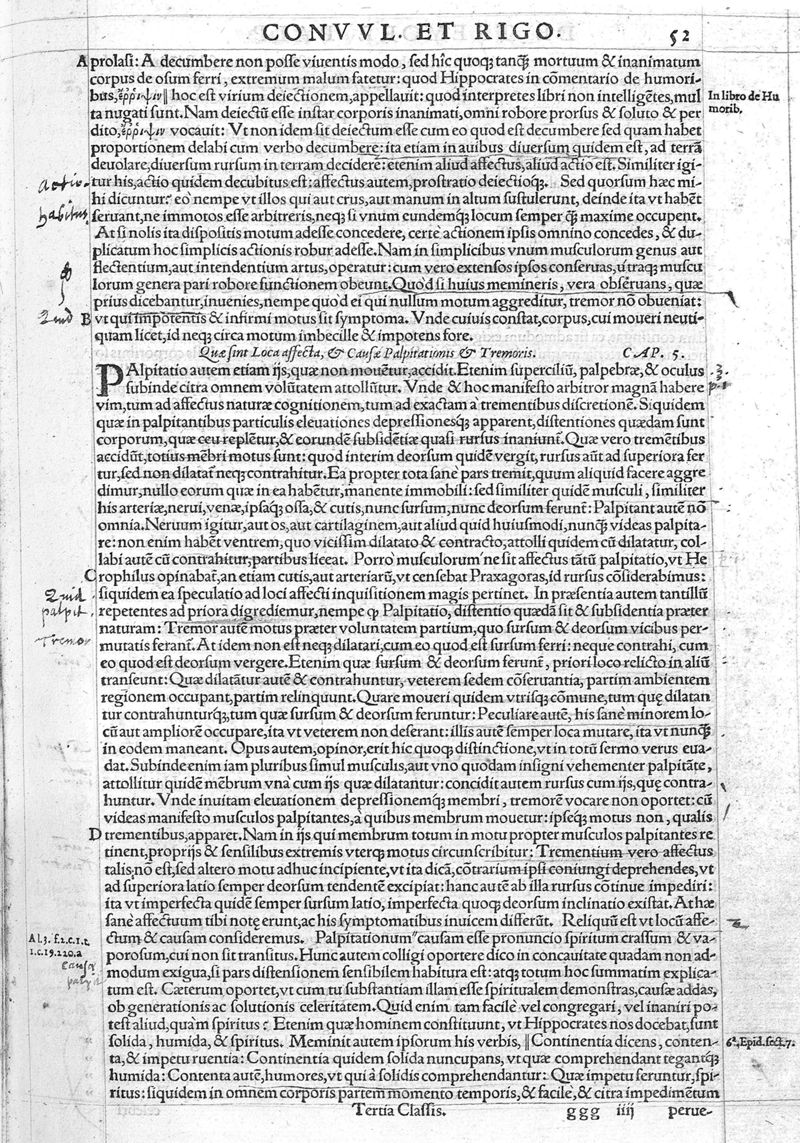 CONVVL. ET RIGO. 52
A prolasi: A decumbere non posse viuentis modo, sed hîc quoq; tanq̃; mortuum & inanimatum
corpus de osum ferri, extremum malum fatetur: quod Hippocrates in cōmentario de humori-
bus, ἔῤῥιψιν || hoc est virium deiectionem, appellauit: quod interpretes libri non intelligētes, mul
In libro de Hu
morib.
ta nugati sunt. Nam deiectū esse instar corporis inanimati, omni robore prorsus & soluto & per
dito, ἔῤῥιψιν vocauit: Vt non idem sit deiectum esse cum eo quod est decumbere sed quam habet
proportionem delabi cum verbo decumbere: ita etiam in auibus diuersum quidem est, ad terrā
deuolare, diuersum rursum in terram decidere: etenim aliud affectus, aliud actio est. Similiter igi-
tur his, actio quidem decubitus est: affectus autem, prostratio deiectioq;. Sed quorsum hæc mi-
hi dicuntur? eò nempe vt illos qui aut crus, aut manum in altum sustulerunt, deinde ita vt habēt
habitus
seruant, ne immotos esse arbitreris, neq; si vnum eundemq; locum semper q̃; maxime occupent.
At si nolis ita dispositis motum adesse concedere, certè actionem ipsis omnino concedes, & du-
plicatum hoc simplicis actionis robur adesse. Nam in simplicibus vnum musculorum genus aut
flectentium, aut intendentium artus, operatur: cum vero extensos ipsos conseruas, vtraq; muscu
lorum genera pari robore functionem obeunt. Quòd si huius memineris, vera obseruans, quæ
prius dicebantur, inuenies, nempe quod ei qui nullum motum aggreditur, tremor nō obueniat:
B vt qui impotentis & infirmi motus sit symptoma. Vnde cuiuis constat, corpus, cui moueri neuti-
quam licet, id neq; circa motum imbecille & impotens fore.
Quæ sint Loca affecta, & Causæ Palpitationis & Tremoris. CAP. 5.
PAlpitatio autem etiam ijs, quæ non mouētur, accidit. Etenim supercilíũ, palpebræ, & oculus
subinde citra omnem volūtatem attollūtur. Vnde & hoc manifesto arbitror magnā habere
vim, tum ad affectus naturæ cognitionem, tum ad exactam à trementibus discretionē. Siquidem
quæ in palpitantibus particulis eleuationes depressionesq; apparent, distentiones quædam sunt
corporum, quæ ceu replētur, & eorundē subsidētiæ quasi rursus inaniunt̃. Quæ vero tremētibus
accidūt, totius mēbri motus sunt: quod interim deorsum quidē vergit, rursus aūt ad superiora fer
tur, sed non dilatat̃ neq; contrahitur. Ea propter tota sanè pars tremit, quum aliquid facere aggre
dimur, nullo eorum quæ in ea habētur, manente immobili: sed similiter quidē musculi, similiter
his arteriæ, nerui, venæ, ipsaq; ossa, & cutis, nunc sursum, nunc deorsum ferunt̃: Palpitant autē nō
omnia. Neruum igitur, aut os, aut cartilaginem, aut aliud quid huiusmodi, nunq̃; videas palpita-
re: non enim habēt ventrem, quo vicissim dilatato & contracto, attolli quidem cū dilatatur, col-
labi autē cū contrahitur, partibus liceat. Porrò musculorum ne sit affectus tātū palpitatio, vt He
C rophilus opinabat̃, an etiam cutis, aut arteriarū, vt censebat Praxagoras, id rursus cōsiderabimus:
siquidem ea speculatio ad loci affecti inquisitionem magis pertinet. In præsentia autem tantillū
palpit.
repetentes ad priora digrediemur, nempe ꝙ Palpitatio, distentio quædā sit & subsidentia præter
Tremor
naturam: Tremor autē motus præter voluntatem partium, quo sursum & deorsum vicibus per-
mutatis ferant̃. At idem non est neq; dilatari, cum eo quod est sursum ferri: neque contrahi, cum
eo quod est deorsum vergere. Etenim quæ sursum & deorsum ferunt̃, priori loco relicto in aliū
transeunt: Quæ dilatātur autē & contrahuntur, veterem sedem cōseruantia, partim ambientem
regionem occupant, partim relinquunt. Quare moueri quidem vtrisq; cōmune, tum quę dilatan
tur contrahunturq;, tum quæ sursum & deorsum feruntur: Peculiare autē, his sanè minorem lo-
cū aut ampliorē occupare, ita vt veterem non deserant: illis autē semper loca mutare, ita vt nunq̃;
in eodem maneant. Opus autem, opinor, erit hic quoq; distinctione, vt in totū sermo verus eua-
dat. Subinde enim iam pluribus simul musculis, aut vno quodam insigni vehementer palpitāte,
attollitur quidē mēbrum vnà cum ijs quæ dilatantur: concidit autem rursus cum ijs, quę contra-
huntur. Vnde inuitam eleuationem depressionemq; membri, tremorē vocare non oportet: cū
videas manifesto musculos palpitantes, à quibus membrum mouetur: ipseq; motus non, qualis
D trementibus, apparet. Nam in ijs qui membrum totum in motu propter musculos palpitantes re
tinent, proprijs & sensilibus extremis vterq; motus circunscribitur: Trementium vero affectus
talis nō est, sed altero motu adhuc incipiente, vt ita dicā, cōtrarium ipsi coniungi deprehendes, vt
ad superiora latio semper deorsum tendentē excipiat: hanc autē ab illa rursus cōtinue impediri:
ita vt imperfecta quidē semper sursum latio, imperfecta quoq; deorsum inclinatio existat. At hæ
sanè affectuum tibi notę erunt, ac his symptomatibus inuicem differūt. Reliquū est vt locū affe-
Al. 3. f. 2. c. 1. t.
1. c. 19. 220. a
ctum & causam consideremus. Palpitationum causam esse pronuncio spiritum crassum & va-
porosum, cui non sit transitus. Hunc autem colligi oportere dico in concauitate quadam non ad-
modum exigua, si pars distensionem sensibilem habitura est: atq; totum hoc summatim explica-
tum est. Cæterum oportet, vt cum tu substantiam illam esse spiritualem demonstras, causæ addas,
ob generationis ac solutionis celeritatem. Quid enim tam facilè vel congregari, vel inaniri po-
test aliud, quàm spiritus? Etenim quæ hominem constituunt, vt Hippocrates nos docebat, sunt
solida, humida, & spiritus. Meminit autem ipsorum his verbis, || Continentia dicens, conten-
6ᵃ. Epid. sect. 7.
ta, & impetu ruentia: Continentia quidem solida nuncupans, vt quæ comprehendant tegantq;
humida: Contenta autē, humores, vt qui à solidis comprehendantur: Quæ impetu feruntur, spi-
ritus: siquidem in omnem corporis partem momento temporis, & facilè, & citra impedimētum
Tertia Classis. ggg iiij perue-